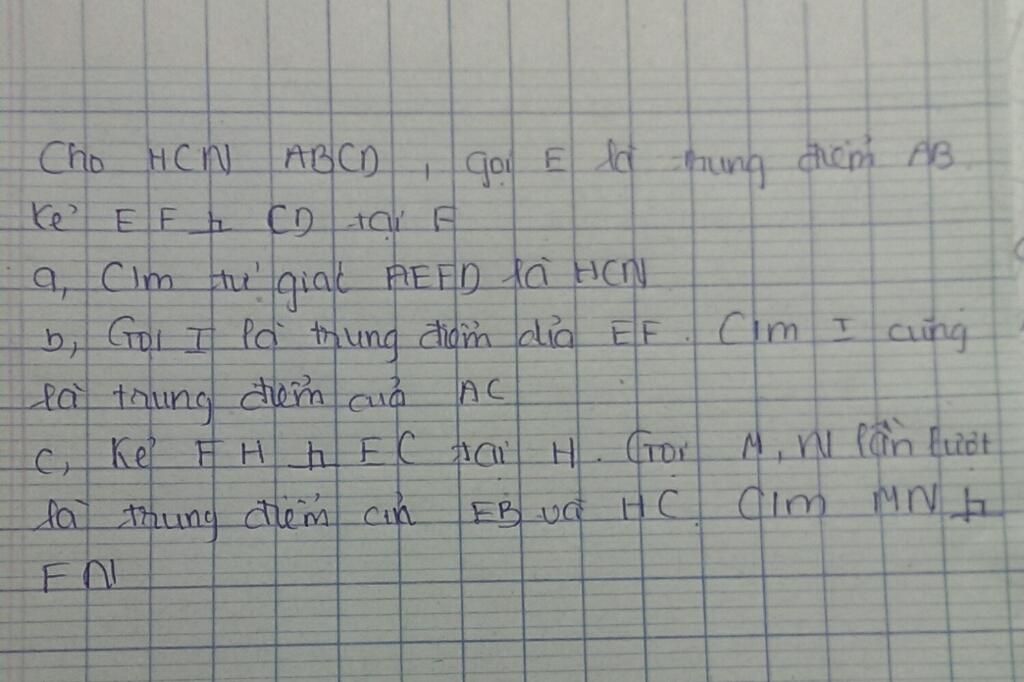 Cho HCN ABCD, gọi E là trung điểm AB
Kẻ EF ⊥ CD tại F
a, C/m tứ giác AEFD là HCN
b, Gọi I là trung điểm của EF. C/m I cũng
là trung điểm của AC
c, Kẻ FH ⊥ EC tại H. Gọi M, N lần lượt
là trung điểm của EB và HC. C/m MN ⊥
FN